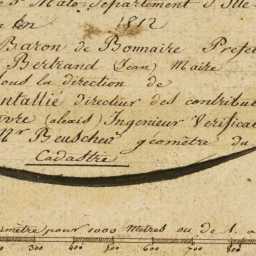 St Malo, Département d'Ille
en 1812
Baron de Bonnaire Préfet
Bertrand (Jean) Maire
sous la direction de
ntallié directeur des contribut
vre (alexis) Ingenieur Verifica
Mr Beuscher géomètre du
Cadastre
mètre pour 1000 Mètres ou de 1. a
300 400 500 600 700 800